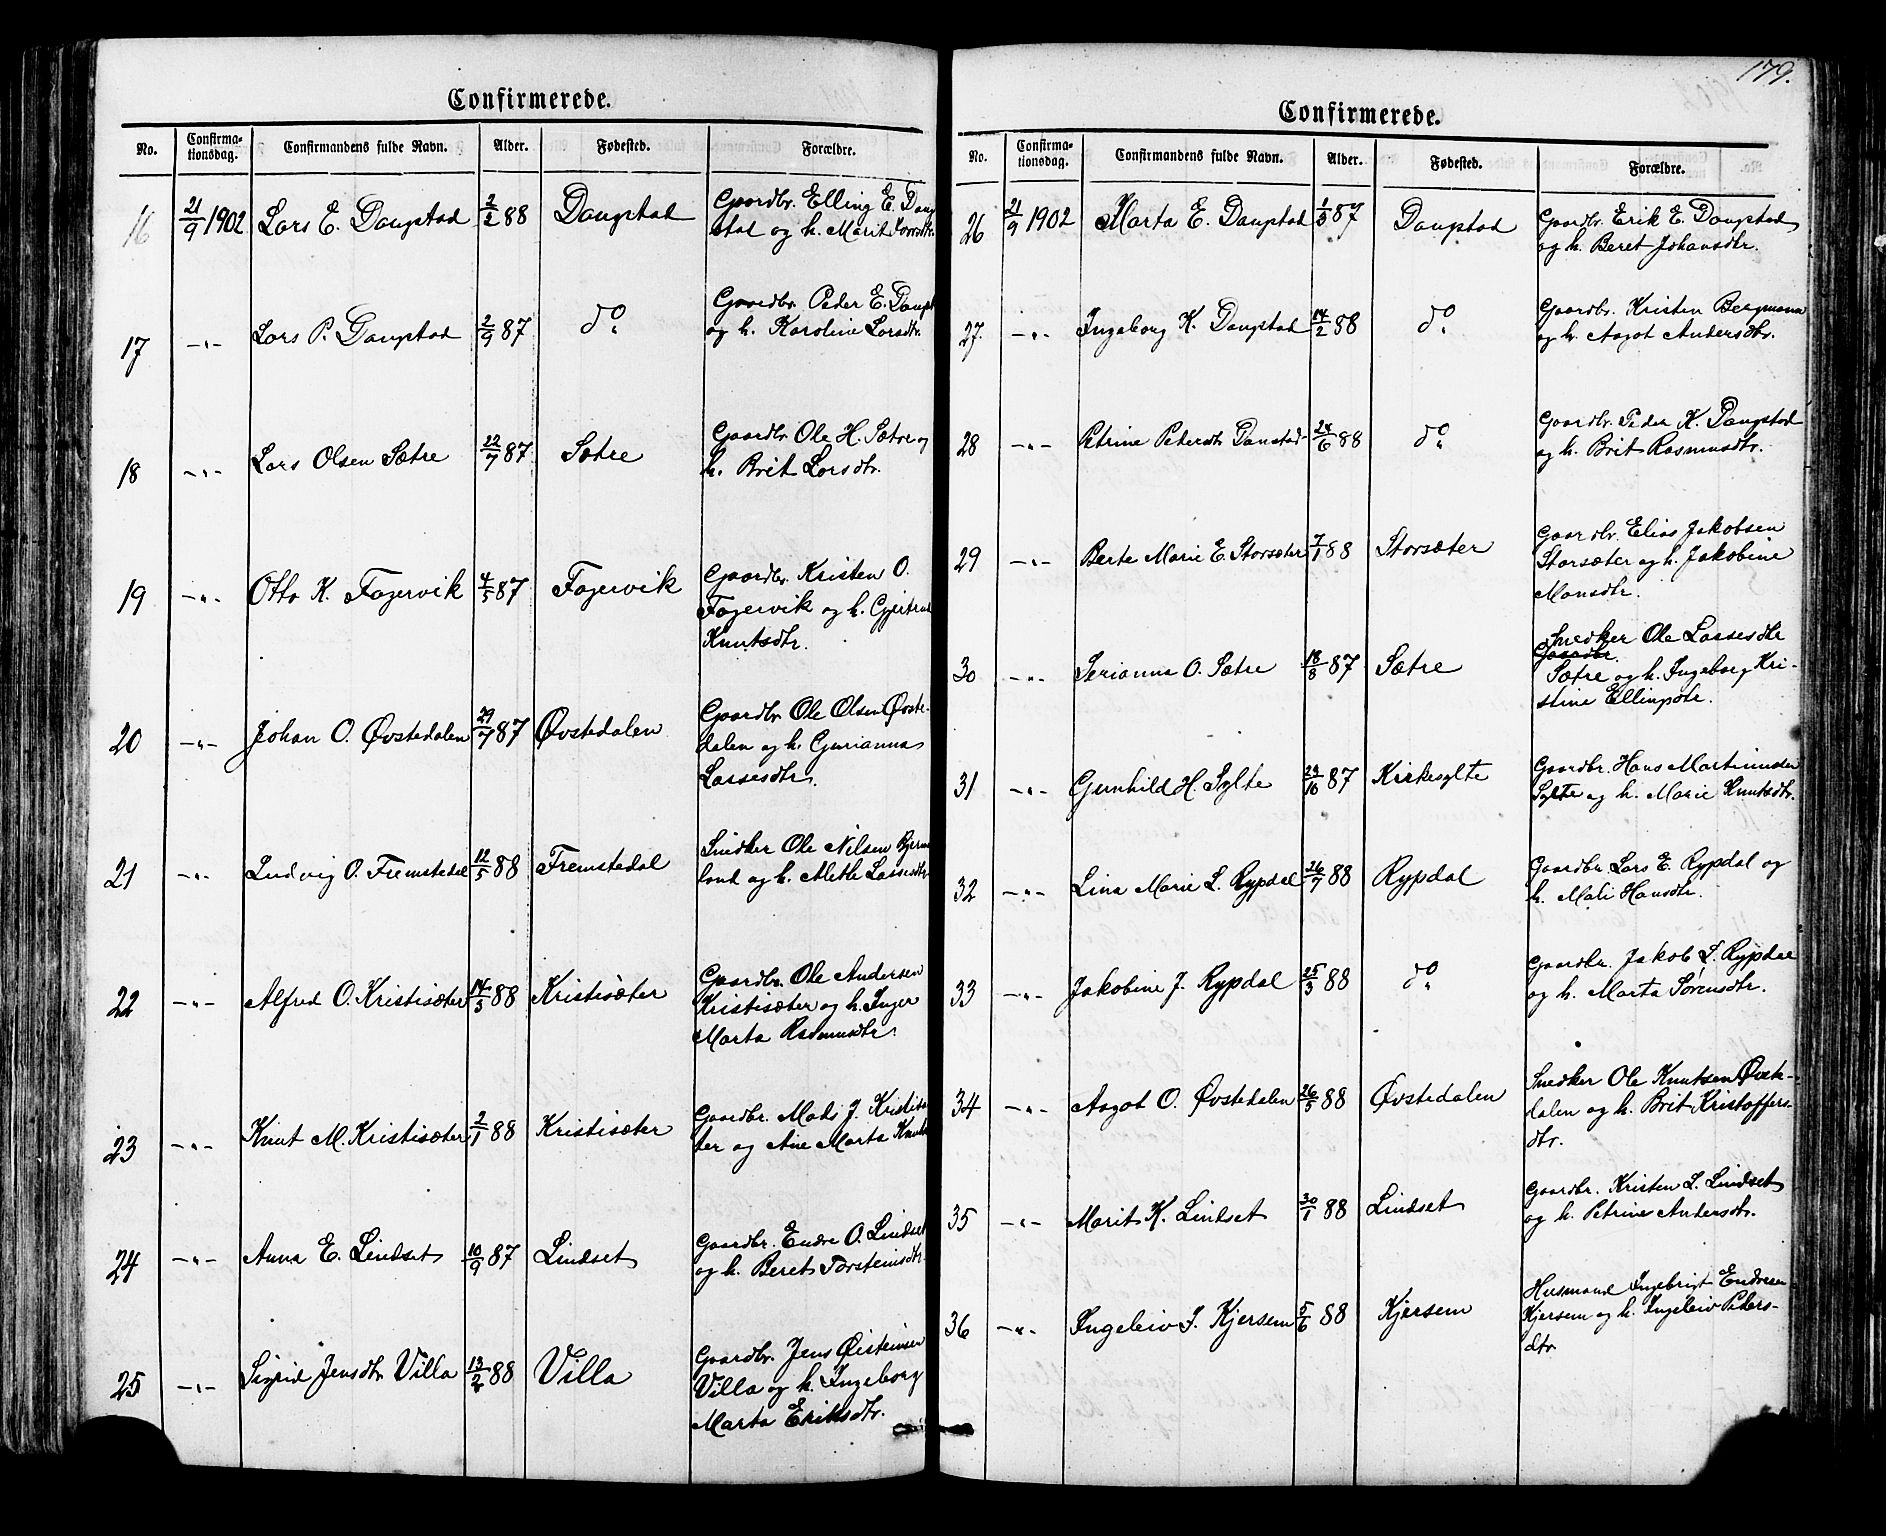 Confirmerede.
No. Confirma-tionsdag. Confirmandens fulde Navn. Alder. Fødested. Forældre.
16 21/9 1902 Lars E. Daugstad 2/2 88 Daugstad Gaardbr. Elling E. Daug
stad og h. Marit
17 -"- Lars P. Daugstad 2/9 87 do Gaardbr. Peder E. Daugst
og h. Karoline Larsdtr.
18 -"- Lars Olsen Sætre 22/7 87 Sætre Gaardbr Ole H. Sætre og
h. Brit Larsdtr.
19 -"- Otto K. Fagervik 4/5 87 Fagervik Gaardbr. Kristen O.
Fagervik og h. Gjertrud
Knutsdtr.
20 -"- Johan O. Øvstedalen 29/7 87 Øvstedalen Gaardbr. Ole Olsen Øvste-
dalen og h. Gurianna
Lassesdtr.
21 -"- Ludvig O. Fremstedal 12/5 88 Fremstedal Snedker Ole Nilsen
land og h. Mette Lassesdtr
22 -"- Alfred O. Kristisæter 14/3 88 Kristisæter Gaardbr. Ole Andersen
Kristisæter og h. Inger
Marta Rasmusdtr.
23 -"- Knut M. Kristisæter 2/1 88 Kristisæter Gaardbr. Mads J. Kristisæ
ter og Ane Marta Knuts
24 -"- Anna E. Lindset 10/9 87 Lindset Gaardbr. Endre O. Lindset
og h. Beret Torsteinsdtr.
25 -"- Sigrid Jensdtr Villa 13/2 88 Villa Gaardbr. Jens Øisteinsen
Villa og h. Ingeborg
Marta Eriksdtr.
179.
Confirmerede.
No. Confirma-tionsdag. Confirmandens fulde Navn. Alder. Fødested. Forældre.
26 21/9 1902 Marta E. Daugstad 1/3 87 Daugstad Gaardbr. Erik E. Daugstad
og h. Beret Johansdtr.
27. -"- Ingeborg K. Daugstad 14/2 88 do Gaardbr. Kristen Bergmann
og h. Aagot Andersdtr.
28 -"- Petrine Petersdtr Daugstad 24/6 88 do Gaardbr. Peder K. Daugstad
og h. Brit Rasmusdtr.
29 -"- Berte Marie E. Storsæter 7/1 88 Storsæter Gaardbr. Elias Jakobsen
Storsæter og h. Jakobine
Monsdtr.
30 -"- Serianna O. Sætre 18/8 87 Sætre Snedker Ole Lassesdtr
Gaardbr.
Sætre og h. Ingeborg Kri-
stine Ellingsdtr.
31 -"- Gunhild H. Sylte 24/10 87 Kirkesylte Gaardbr. Hans Martinusen
Sylte og h. Marie Knutsdtr.
32 -"- Lina Marie L. Rypdal 26/7 88 Rypdal Gaardbr Lars E. Rypdal og
h. Mali Hansdtr.
33 -"- Jakobine J. Rypdal 25/3 88 do Gaardbr. Jakob L. Rypdal
og h. Marta Sørensdtr.
34 -"- Aagot O. Øvstedalen 26/5 88 Øvstedalen Snedker Ole Knutsen Øvste-
dalen og h. Brit Kristoffers-
dtr.
35 -"- Marit K. Lindset 30/1 88 Lindset Gaardbr. Kristen L. Lindset
og h. Petrine Andersdtr.
36 -"- Ingeleiv I. Kjersem 5/6 88 Kjersem Husmand Ingebrigt Endresen
Kjersem og h. Ingeleiv Peders-
dtr.